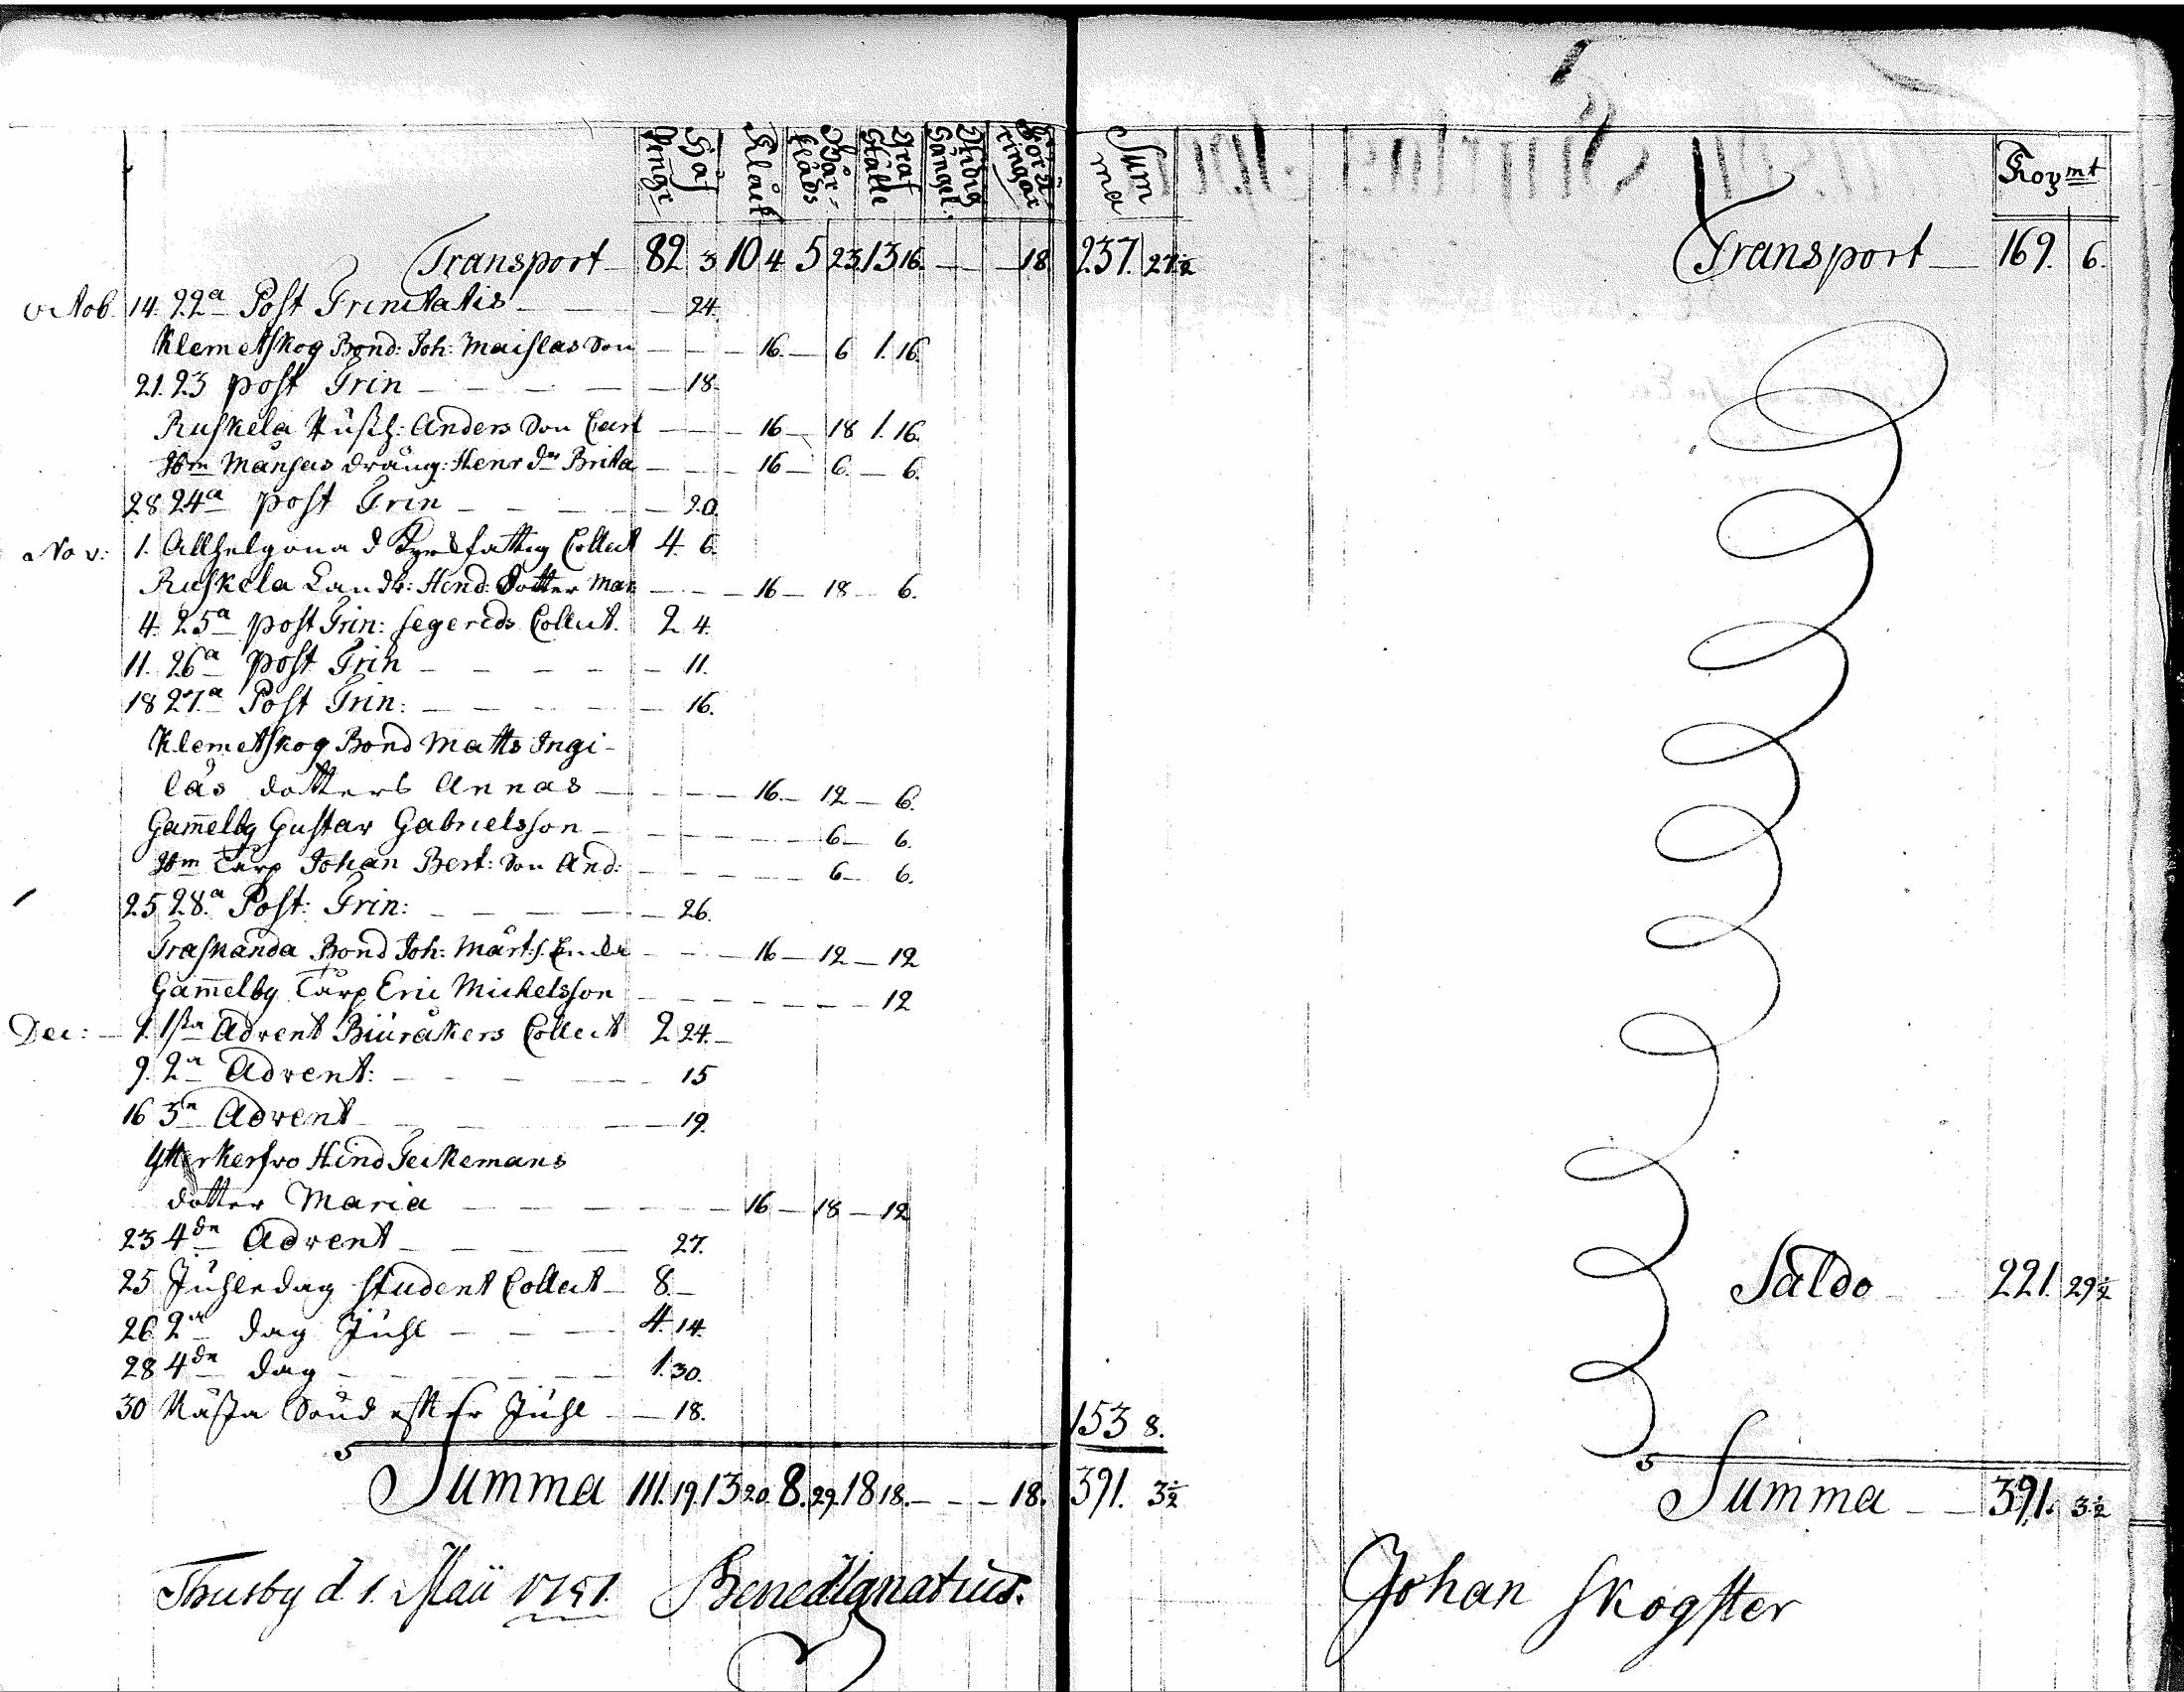 Håf Pengr Klåck Bår- kläds Graf ställe Ordig Gångel. Förä- ringar Summa Kopmt
Transport 82 3 10 4 5 23 13 16. — — 18 237. 27½
Octob. 14. 22a Post Trinitatis — 24.
Klemetskog Bond: Joh: Maislas Son — — — 16. — 6 1. 16.
21. 23 post Trin — — 18.
Ruskela Anders Son Carl — — — 16 — 18 1. 16.
Ibm Månsas dräng: Henr dr Brita — — — 16 — 6. — 6.
28 24a post Trin — — 20.
Nov: 1. Allhelgona d fattig Collect 4. 6.
Ruskela Landb: Hind: dotter Mar — — — 16 — 18 — 6.
4. 25a post Trin: Segereds Collect. 2 4.
11. 26a post Trin — — 11.
18 27a Post Trin: — — 16.
Klemetskog Bond Matts Ingi-
las dotters Annas — — — 16. — 12 — 6.
Gamelby Gustav Gabrielsson — — — 6 — 6.
Ibm Tårp Johan Bert: Son And: — — — 6 — 6.
25 28.a Post: Trin: — — 26.
Träskända Bond Joh: Märt: s. — — — 16 — 12 — 12
Gamelby Tårp Eric Michelsson — — — 12
Dec: — 1sta Advent Biuråkers Collect 2 24. —
9. 2a Advent: — — 15
16 3a Advent — — 19.
Hind Teikemans
dotter Maria — — — 16 — 18 — 12
23 4de Advent — — 27.
25 Juhledag student Collect — 8. —
26 2a dag Juhl — — 4. 14.
28 4de dag — — 1. 30.
30 Nästa Sönd efter Juhl — — 18. 153 8.
Summa 111. 19. 13 20. 8. 29. 18 18. — — — 18. 391. 3½
Thusby d 1. Maii 1751. Bened Ignatius.
Transport — 169. 6.
Saldo — 221. 29½
Summa — — 391. 3½
Johan Skogster